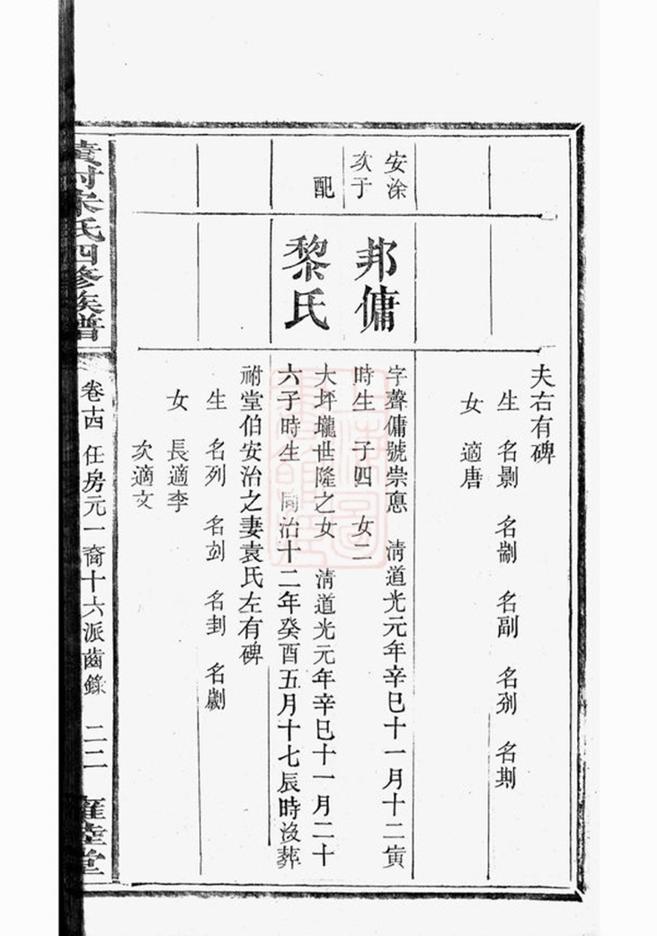 夫右有碑
生 名剔 名副 名列
女 適唐
安涂
次于
邦傭
字聲傭號崇惪 清道光元年辛巳十一月十二寅
時生 子四 女二
配
黎氏
大坪壠世隆之女 清道光元年辛巳十一月二十
六子時生 同治十二年癸酉五月十七辰時沒葬
祔堂伯安治之妻袁氏左有碑
生 名列 名刻 名封 名劌
女 長適李
次適文
宋氏四修族譜
卷十四 任房元一裔十六派齒錄 二二
雍睦堂